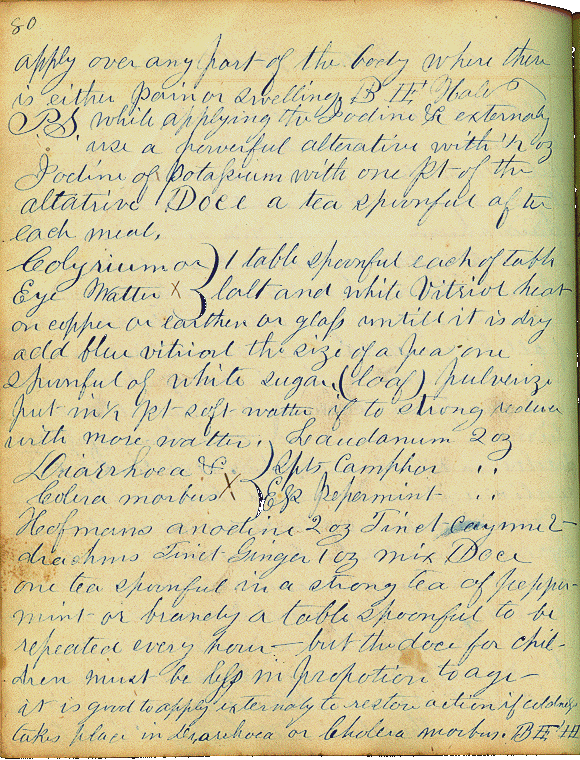 80
apply over any part of the body where there
is either pain or swelling, B. H. Hale
PS while applying the Iodine &c externaly
use a powerful alterative with ½ oz
Iodine of potassium with one pt of the
altatrive Doce a tea spoonful after
each meal.
Colyrium or } 1 table spoonful each of table
Eye Watter x } salt and white Vitriol heat
on copper or earthen or glass untill it is dry
add blue vitriol the size of a pea one
spoonful of white sugar, (loaf) pulverize
put in ½ pt soft watter if to strong reduce
with more watter. Laudanum 2 oz
Diarrhoea & } Spts Camphor "
Colera morbus X } Ess Pepermint "
Hoffmans anodine 2 oz Tinct cayenne 2
drachms Tinct Ginger 1 oz mix Doce
one tea spoonful in a strong tea of pepper-
mint or brandy a table spoonful to be
repeated every hour — but the doce for chil-
dren must be less in propotion to age —
it is good to apply externaly to restore action if coldness
takes place in Diarrhoea or Cholera morbus.